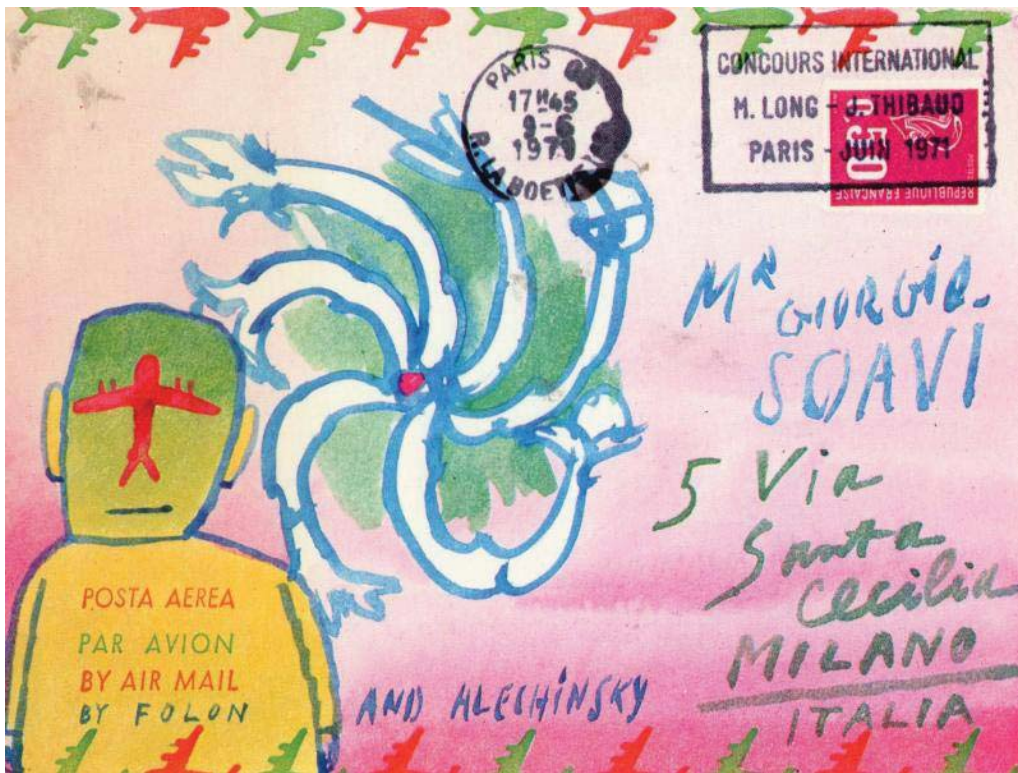 PARIS
17H45
9-6
1971
R. LA BOETIE
CONCOURS INTERNATIONAL
M. LONG - J. THIBAUD
PARIS - JUIN 1971
0,50
POSTES
REPUBLIQUE FRANÇAISE
MR GIORGIO
SOAVI
5 Via
Santa
Cecilia
MILANO
ITALIA
POSTA AEREA
PAR AVION
BY AIR MAIL
BY FOLON
AND ALECHINSKY